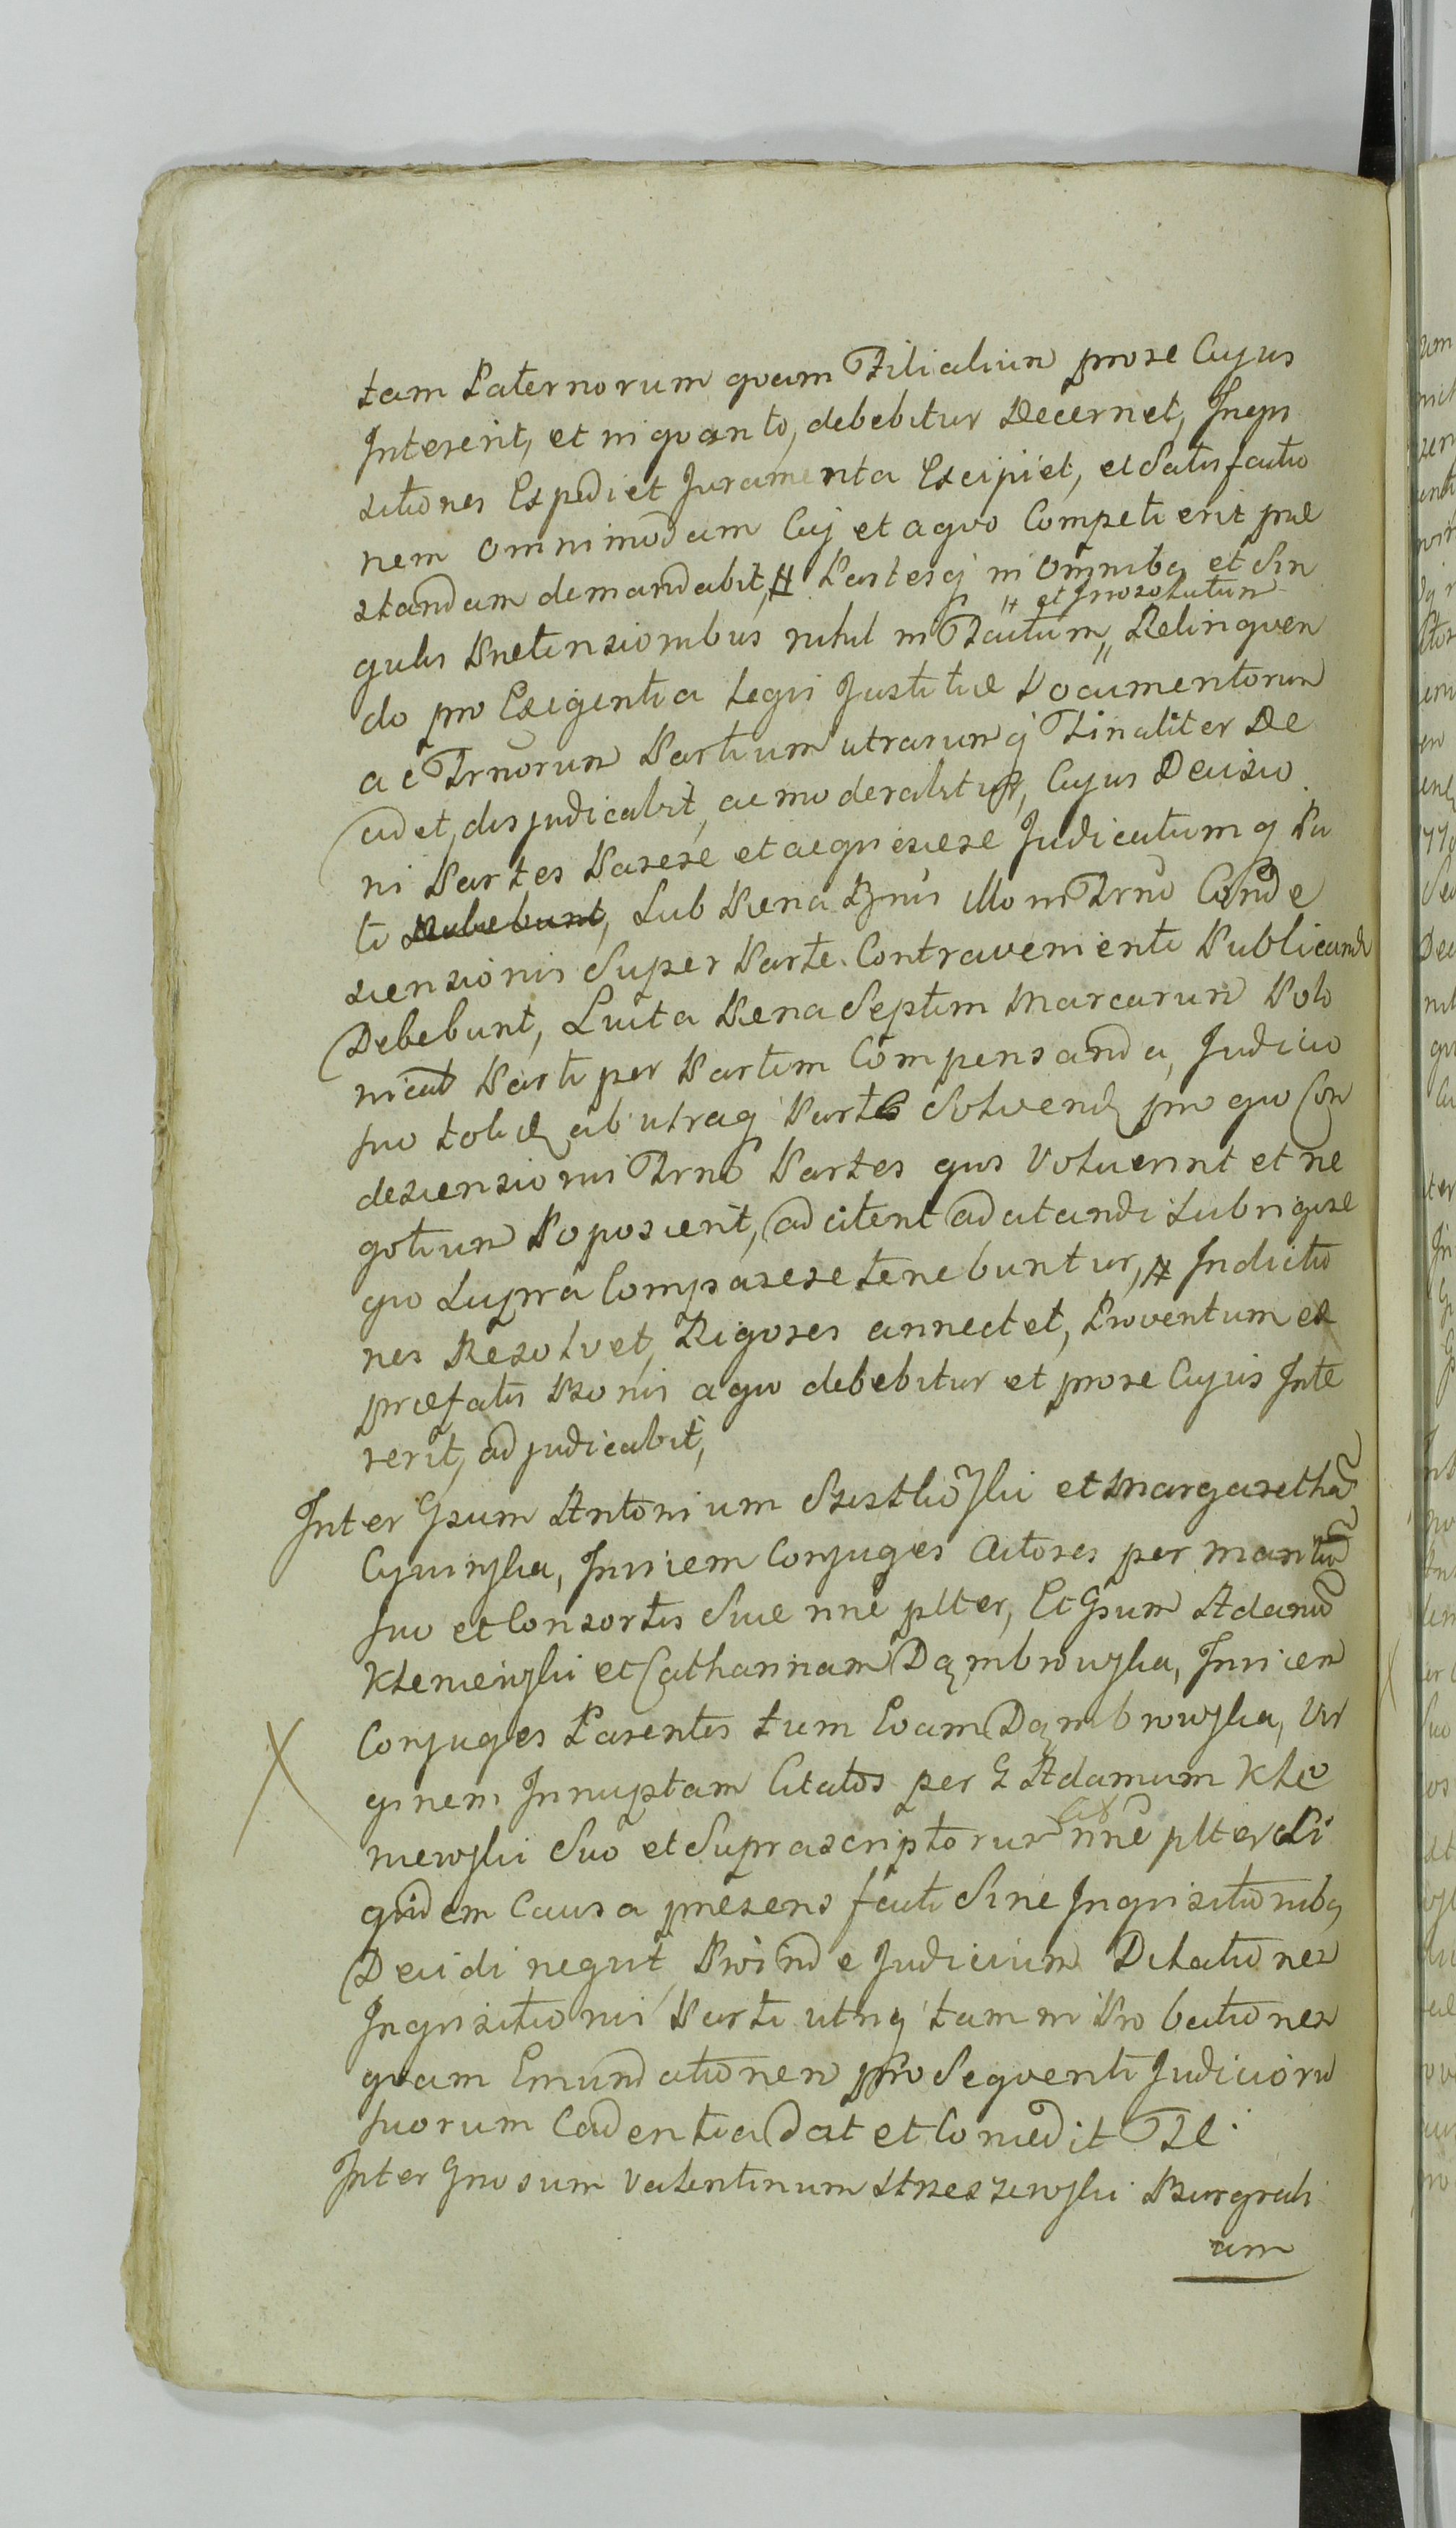 tam Paternorum quam Filialium prose Cujus
Intererit, et in quanto, debebitur Decernet, Inqvi
sitiones Expediet Juramenta Excipiet, et Satisfactio
nem omnimodam Cuj et aquo Competierit præ
standam demandabit, Partesq in Omnibq et Sin
gulis Prætensionibus nihil in Facitum " Relinqven
" et Inrosolutum
do pro Exigentia Legis Justitiæ Documentorum
ac Jrnorum Partium utrarumq Finaliter De
cidet, disjudicabit, ac moderabitur, Cujus Decisio
ni Partes Parere et acqviescere Judicatumq Pa
ti Debebunt, Sub Pæna Bnis illo in Trno Conde
scensionis Super Parte Contraveniente Publicandi
Debebunt, Luita Pæna Septem Marcarum Polo
nical Parti per Partem Compensanda, Judicio
suo tolid ab utraq Parte Solvend pro quo Con
descensionis Trno Partes quos Voluerint et ne
gotium Poposcerit, adcitent adcitandi Sub rigore
quo Supra Comparere tenebuntur, Indictio
nes Resolvet, Rigores annectet, Proventum ex
præfatis Bonis aquo debebitur et prose Cujus Inte
rerit, adjudicabit,
Inter Gsum Antonium et Margaretham
Invicem Conjuges Actores per Maritum
suo et Consortis Suæ nne plter, Et Gsum Adamum
Kleniewski et Catharinam Dąmbrowska, Invicem
Conjuges Parentes tum Evam Dąmbrowska, Vir
ginem Innuptam Citatos per G Adamum Kle
niewski Suo et Suprascriptorum Cit nne plter Si
quidem Causa præsens facti Sine Inqvisitionibq
Decidi nequit, Proinde Judicium Dilationes
Inqvisitionis Parti utriq tam in Probationem
quam Emundationem pro Seqventi Judiciorum
suorum Cadentia dat et Concedit Te.
Inter Gnosum Valentinum Strzeszewski Burgrabi
am